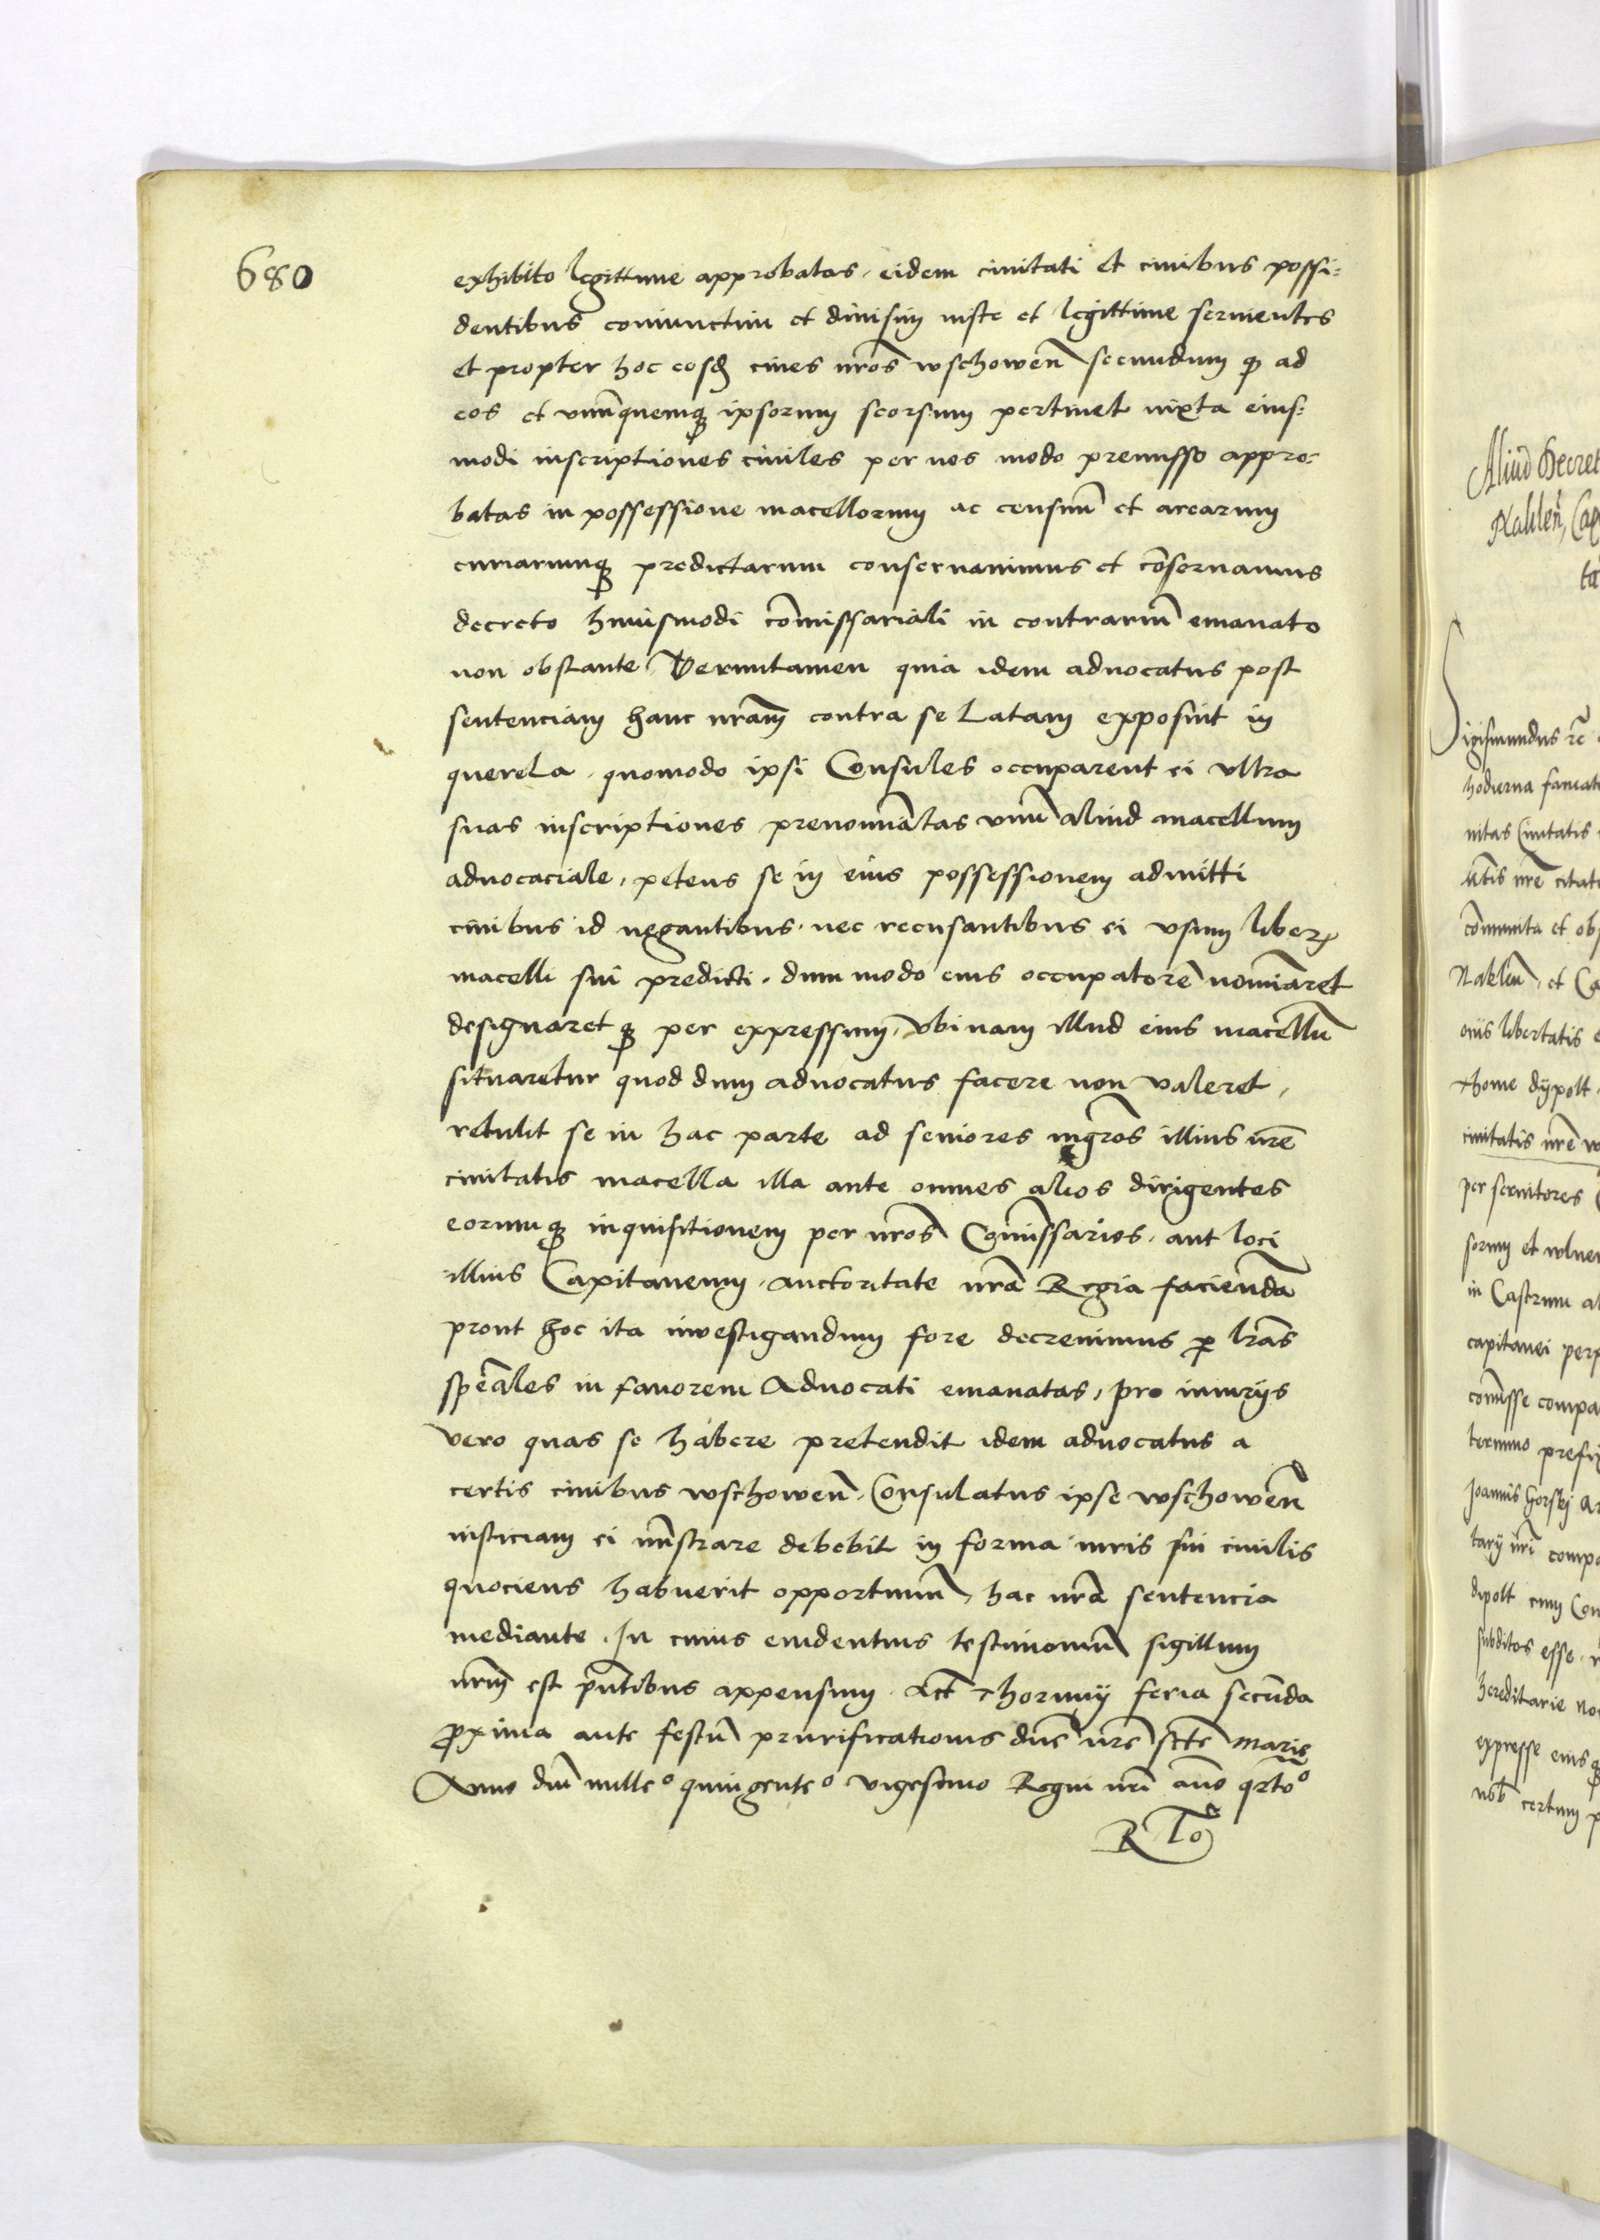 680
exhibito legittime approbatas, eidem ciuitati et ciuibus possi=
dentibus coniunctim et diuisim iuste et legittime seruientes
et propter hoc eosd ciues nros wschowen secundum q ad
eos et vnuquemq ipsorum seorsum pertinet iuxta eius=
modi inscriptiones ciuiles per nos modo premisso appro=
batas in possessione macellorum ac censuu et arearum
curiarumq predictarum conseruauimus et coseruamus
decreto huiusmodi comissariali in contrariu emanato
non obstante Verumtamen quia idem aduocatus post
sentenciam hanc nram contra se Latam exposuit in
querela, quomodo ipsi Consules occuparent ei vltra
suas inscriptiones prenominatas vnu aliud macellum
aduocaciale, petens se in eius possessionem admitti
ciuibus id negantibus, nec recusantibus ei vsum liber
macelli sui predicti, dum modo eius occupatore nominaret
designaret q per expressum, vbinam illud eius macellu
situaretur quod dum aduocatus facere non valeret,
retulit se in hac parte ad seniores mgros illius nre
ciuitatis macella illa ante omnes alios dirigentes
eorumq inquisitionem per nros Comissarios, aut loci
illius Capitaneum, auctoritate nra Regia facienda
prout hoc ita inuestigandum fore decreuimus p lras
speales in fauorem Aduocati emanatas, pro iniurijs
vero quas se habere pretendit idem aduocatus a
certis ciuibus wschowen, Consulatus ipse wschowen
iusticiam ei mistrare debebit in forma iuris sui ciuilis
quociens habuerit opportunu, hac nra sentencia
mediante. In cuius euidentius testimoniu sigillum
nrm est pntibus appensum. Act Thorunij feria secunda
proxima ante festu prurificationis dne nre scte Marie
Anno dni mille° quingente° vigesimo Regni nri ano qrto°
R To
Aliud Decret
Naklen, Cap
ta
Sigismundus rc
hodierna
nitas Ciuitatis
citati
comunita et obs
Naklen, et Ca
libertatis
Thome dijpolt
ciuitatis nre w
per seruitores
sorum et vulner
in Castrum al
capitanei perp
comisse compa
termino prefi
Joannis Gorskj
tarij nri compa
dipolt cum Con
subditos esse, n
hereditarie no
expresse eius q
nob certum p